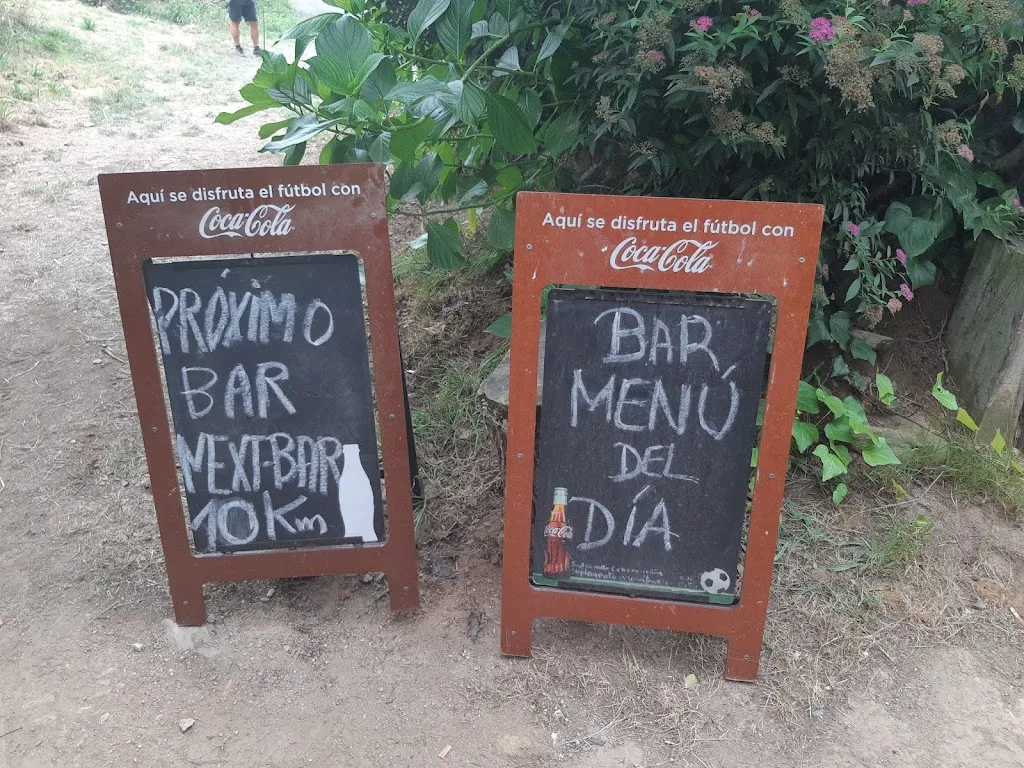 Aquí se disfruta el fútbol con
Coca-Cola
PRÓXIMO
BAR
NEXT-BAR
10Km
Aquí se disfruta el fútbol con
Coca-Cola
BAR
MENÚ
DEL
DÍA
Coca-Cola